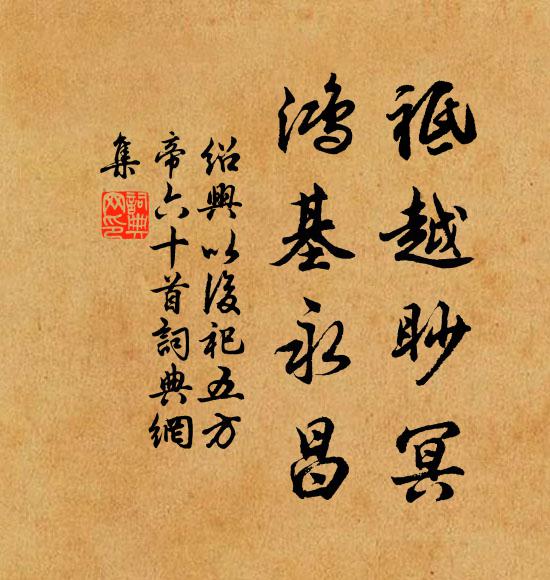 祗越眇冥
鸿基永昌
绍興以後祀五方
帝六十首詞典網
集
詞典
网印